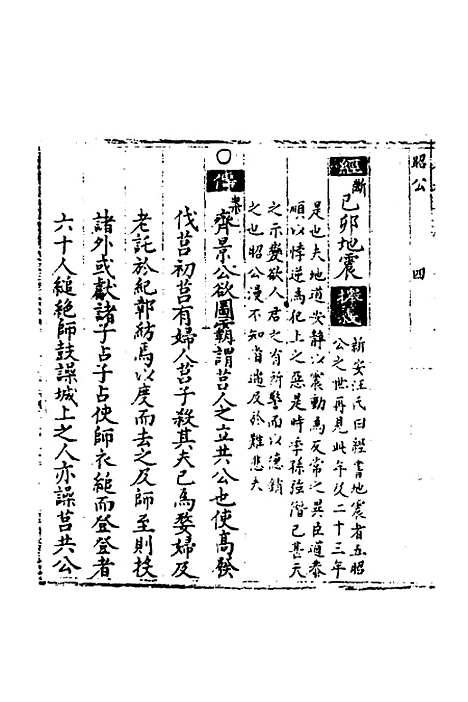 昭公 四
經 斷 己卯地震 據發 新安汪氏曰經書地震者五昭
公之世再見此年及二十三年
是也夫地道安靜以震動為反常之異臣道恭
順以悖逆為化上之惡是時季孫強僭已甚天
之示變欲人君之有所警而以德銷
之也昭公漫不知省遂及於難悲夫
○傳 案 齊景公欲圖霸謂莒人之立共公也使高發
伐莒初莒有婦人莒子殺其夫已為嫠婦及
老託於紀鄣紡焉以度而去之及師至則投
諸外或獻諸子占子占使師衣縋而登登者
六十人縋絕師鼓譟城上之人亦譟莒共公